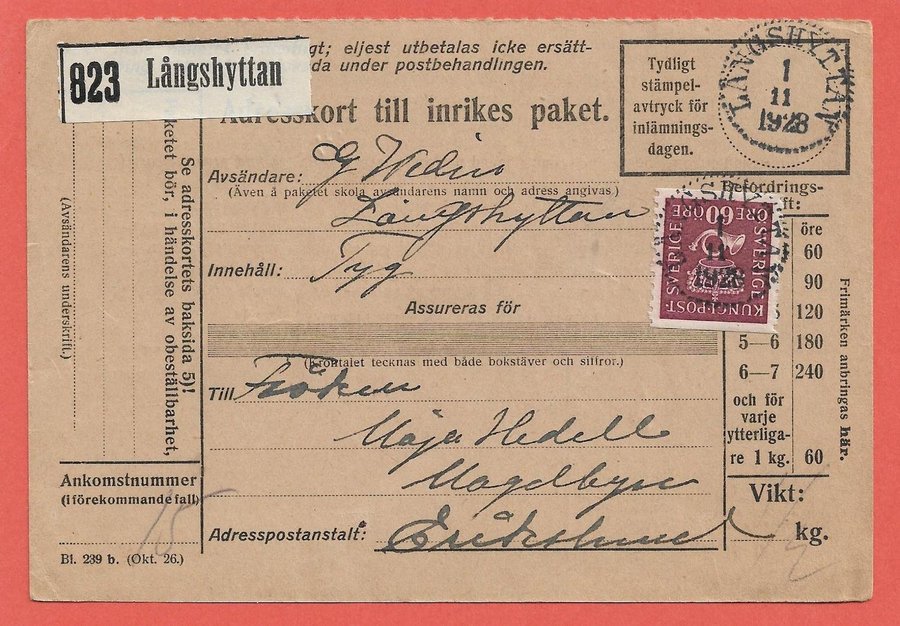 823 Långshyttan
gt; eljest utbetalas icke ersätt-
da under postbehandlingen.
Adresskort till inrikes paket.
Tydligt
stämpel-
avtryck för
inlämnings-
dagen.
LÅNGSHYTTAN
1
11
1928
Avsändare: G Wedin
(Även å paketet skola avsändarens namn och adress angivas)
Långshyttan
Innehåll: Tyg
Assureras för
(Krontalet tecknas med både bokstäver och siffror.)
Till Fröken
Maja Hedell
Magelbyn
Adresspostanstalt: Erikslund
SVERIGE SVERIGE
60 ÖRE ÖRE
KUNGL-POST
1
11
1928
Befordrings-
ft:
öre
60
90
120
5—6 180
6—7 240
och för
varje
ytterliga-
re 1 kg. 60
Vikt:
kg.
Frimärken anbringas här.
Se adresskortets baksida 5)!
ketet bör, i händelse av obeställbarhet,
(Avsändarens underskrift.)
Ankomstnummer
(i förekommande fall)
15
Bl. 239 b. (Okt. 26.)